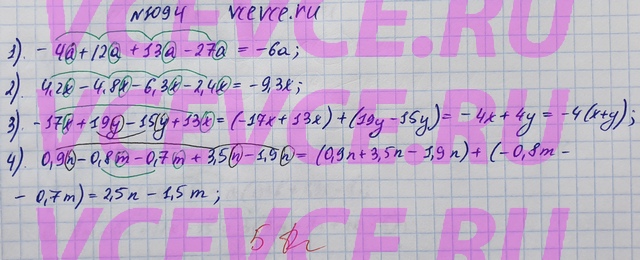 №1094 vcevce.ru
1). - 4a + 12a + 13a - 27a = -6a;
2). 4,2x - 4,8x - 6,3x - 2,4x = -9,3x;
3). -17x + 19y - 15y + 13x = (-17x + 13x) + (19y - 15y) = -4x + 4y = -4(x+y);
4). 0,9n - 0,8m - 0,7m + 3,5n - 1,9n = (0,9n + 3,5n - 1,9n) + (-0,8m -
- 0,7m) = 2,5n - 1,5m;
VCEVCE.RU
VCEVCE.RU
VCEVCE.RU